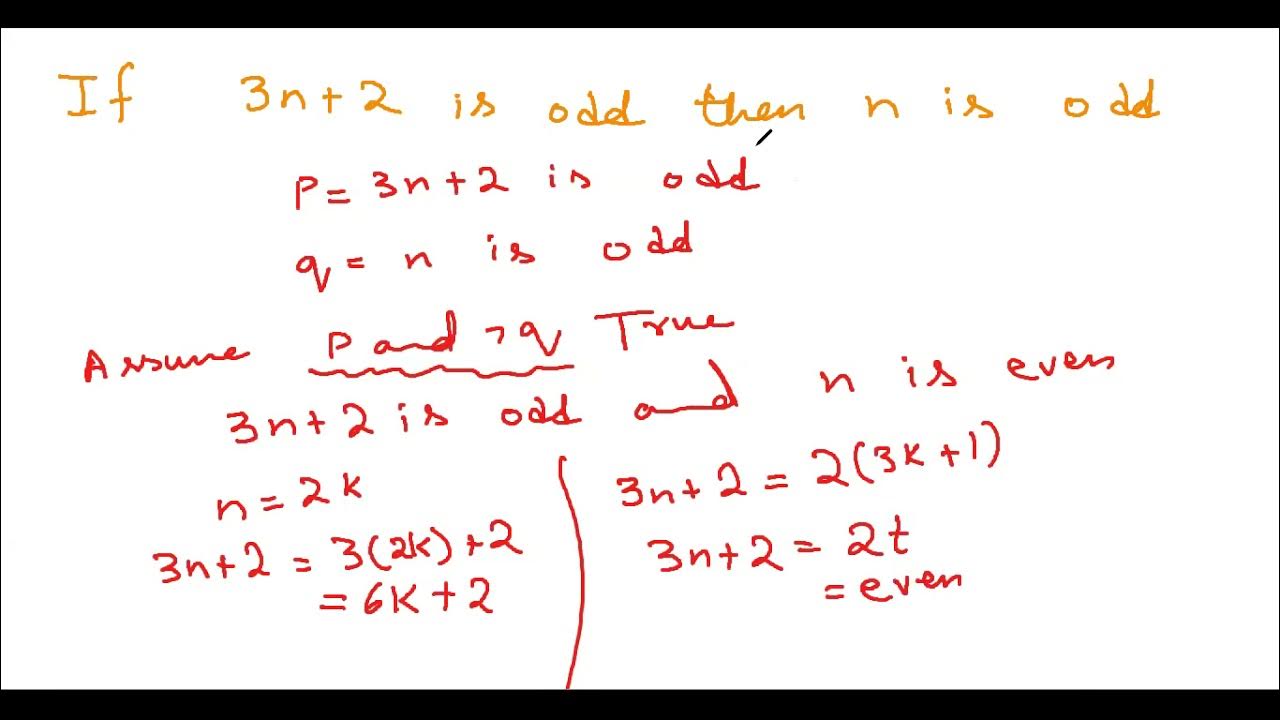 If 3n+2 is odd then n is odd
P= 3n+2 is odd
q= n is odd
Assume P and ¬q True
3n+2 is odd and n is even
n=2k
3n+2 = 3(2k)+2
= 6k+2
3n+2 = 2(3k+1)
3n+2 = 2t
= even